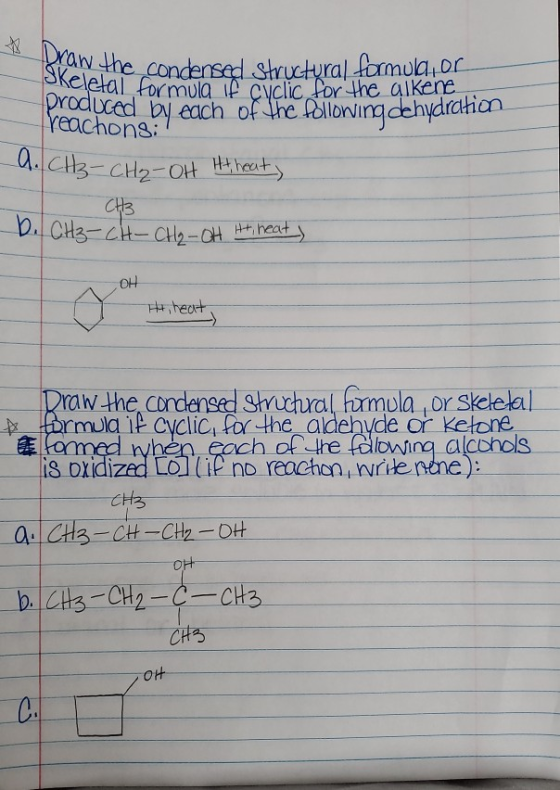 Draw the condensed structural formula, or
skeletal formula if cyclic for the alkene
produced by each of the following dehydration
reactions:
a. CH3-CH2-OH H+, heat
CH3
b. CH3-CH-CH2-OH H+, heat
OH
H+, heat
Draw the condensed structural formula, or skeletal
formula if cyclic, for the aldehyde or ketone
formed when each of the following alcohols
is oxidized [O] (if no reaction, write none):
CH3
a. CH3-CH-CH2-OH
OH
b. CH3-CH2-C-CH3
CH3
OH
C.